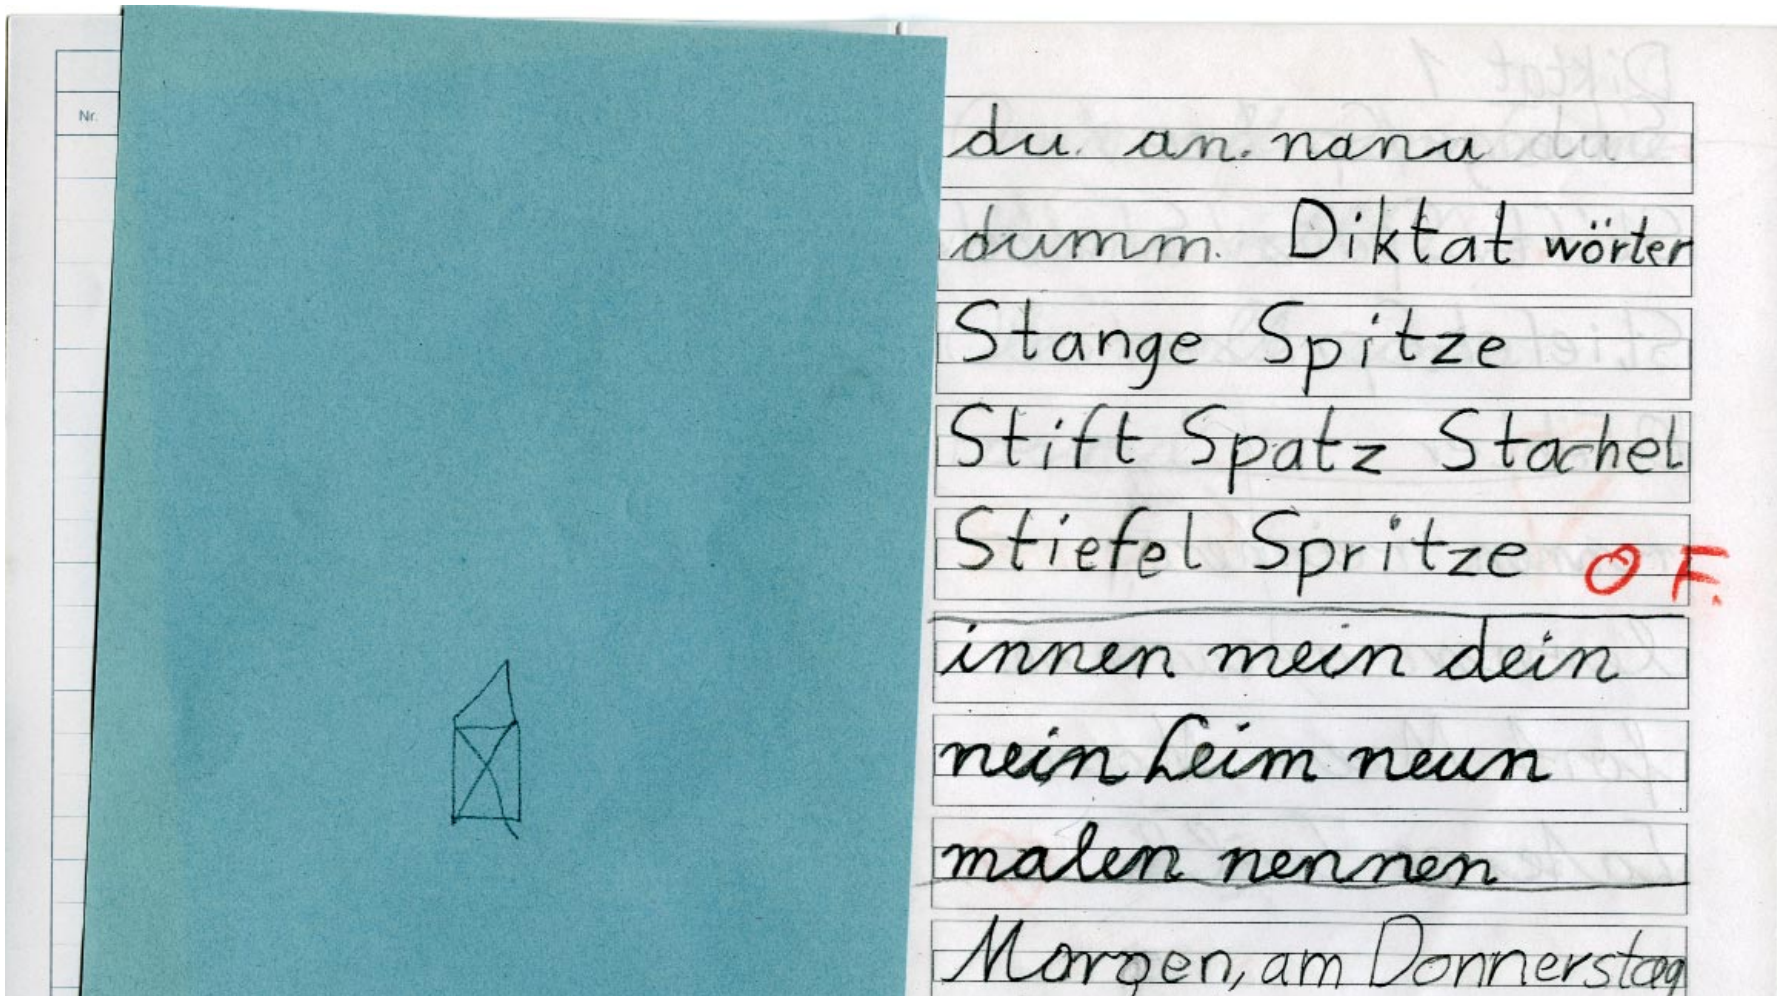 Nr.
du. an. nanu du
dumm. Diktat wörter
Stange Spitze
Stift Spatz Stachel
Stiefel Spritze O F.
innen mein dein
nein Leim neun
malen nennen
Morgen, am Donnerstag